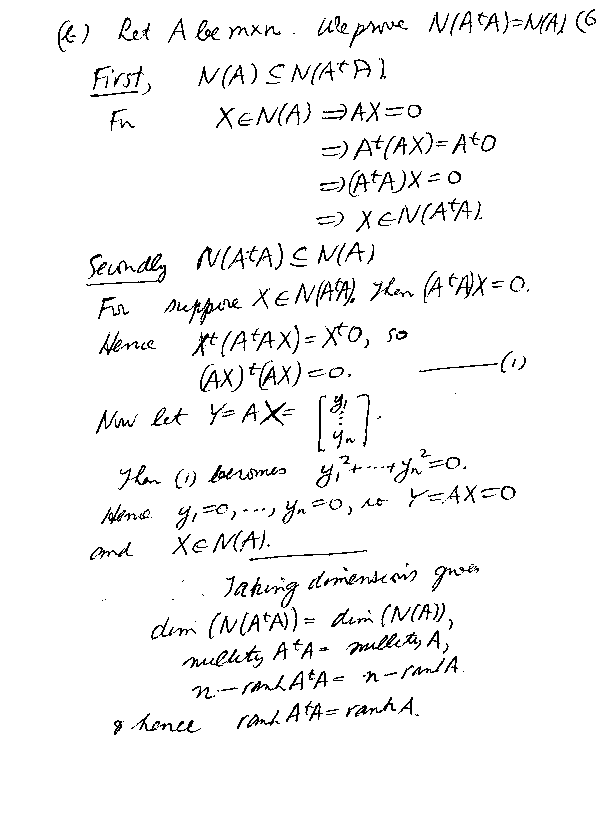 (b) Let A be m×n. We prove N(AᵗA)=N(A) (6
First, N(A) ⊆ N(AᵗA)
For X∈N(A) ⇒ AX=0
⇒ Aᵗ(AX)=Aᵗ0
⇒ (AᵗA)X=0
⇒ X∈N(AᵗA).
Secondly N(AᵗA) ⊆ N(A)
For suppose X∈N(AᵗA). Then (AᵗA)X=0.
Hence Xᵗ(AᵗAX)=Xᵗ0, so
(AX)ᵗ(AX)=0. ———(1)
Now let Y=AX= [y₁ ⋮ yₙ].
Then (1) becomes y₁²+⋯+yₙ²=0.
Hence y₁=0,⋯, yₙ=0, so Y=AX=0
and X∈N(A).
Taking dimensions gives
dim (N(AᵗA)) = dim (N(A)),
nullity AᵗA = nullity A,
n – rank AᵗA = n – rank A.
& hence rank AᵗA = rank A.